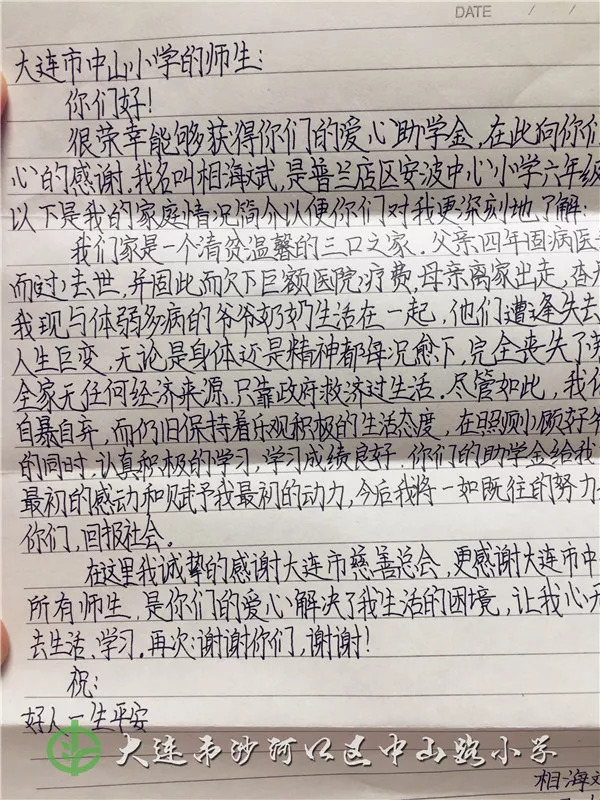 DATE / /
大连市中山小学的师生:
你们好!
很荣幸能够获得你们的爱心助学金,在此向你们
心的感谢.我名叫相海斌,是普兰店区安波中心小学六年级
以下是我的家庭情况简介以便你们对我更深刻地了解:
我们家是一个清贫温馨的三口之家.父亲四年因病医
而过去世,并因此而欠下巨额医院疗费,母亲离家出走,杳
我现与体弱多病的爷爷奶奶生活在一起,他们遭逢失去
人生巨变,无论是身体还是精神都每况愈下,完全丧失了
全家无任何经济来源.只靠政府救济过生活.尽管如此,我
自暴自弃,而仍旧保持着乐观积极的生活态度,在照顾好
的同时,认真积极的学习,学习成绩良好.你们的助学金给我
最初的感动和赋予我最初的动力,今后我将一如既往的努力
你们,回报社会。
在这里我诚挚的感谢大连市慈善总会,更感谢大连市中
所有师生,是你们的爱心解决了我生活的困境,让我心无
去生活、学习.再次:谢谢你们,谢谢!
祝:
好人一生平安
大连市沙河口区中山路小学
相海